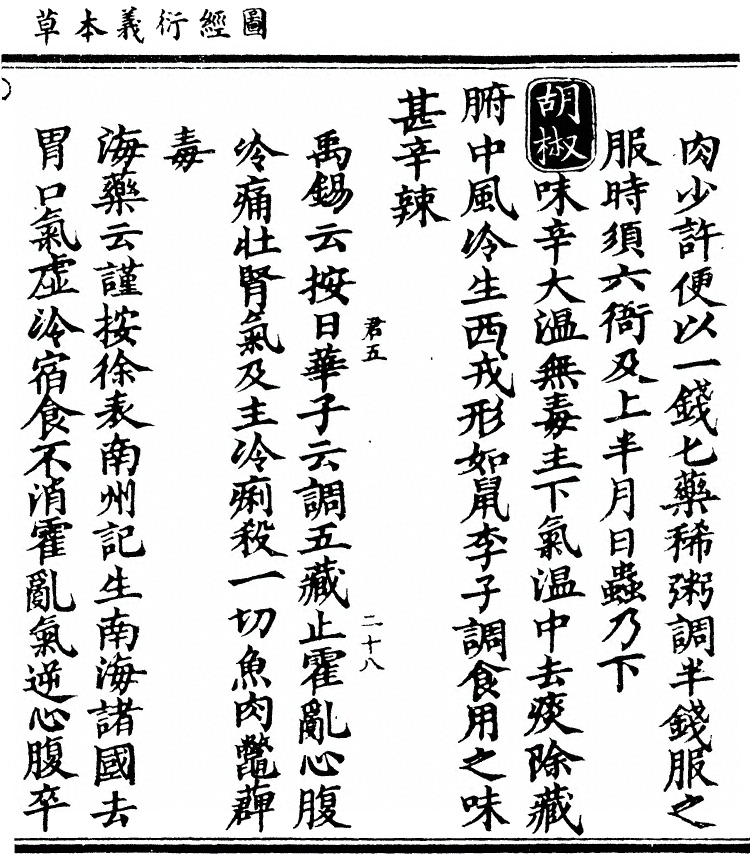 圖經衍義本草
肉少許便以一錢七藥稀粥調半錢服之
服時須六衙及上半月日蟲乃下
胡椒味辛大温無毒主下氣温中去痰除藏
腑中風冷生西戎形如鼠李子調食用之味
甚辛辣
君五
二十八
禹錫云按日華子云調五藏止霍亂心腹
冷痛壯腎氣及主冷痢殺一切魚肉鼈蕈
毒
海藥云謹按徐表南州記生南海諸國去
胃口氣虛冷宿食不消霍亂氣逆心腹卒